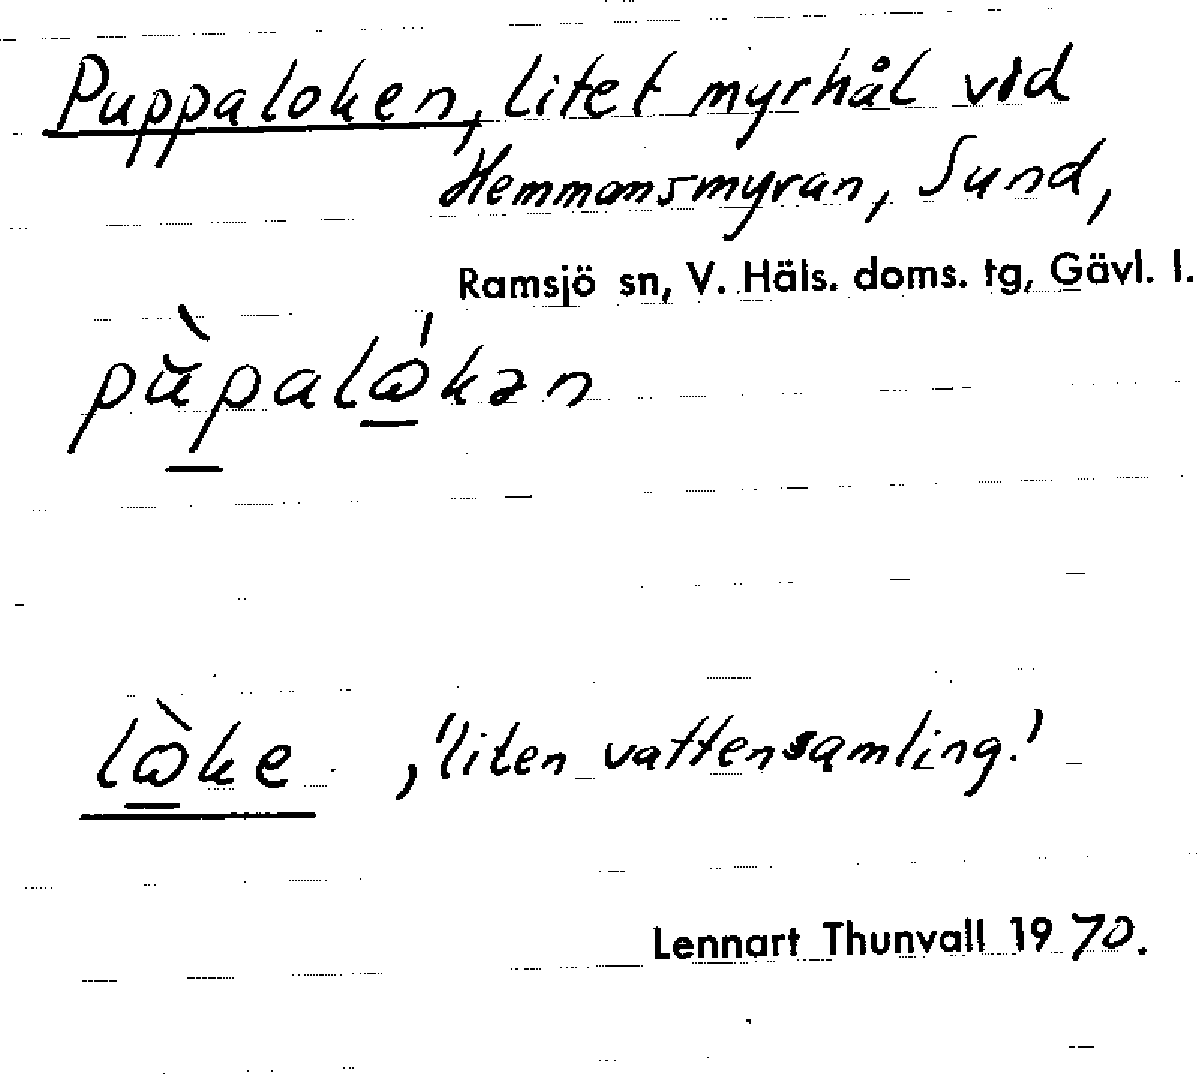 Puppaloken, litet myrhål vid
Hemmansmyran, Sund,
Ramsjö sn, V. Häls. doms. tg, Gävl. l.
pùpalɷ́kən
lɷ̀ke , 'liten vattensamling.'
Lennart Thunvall 1970.